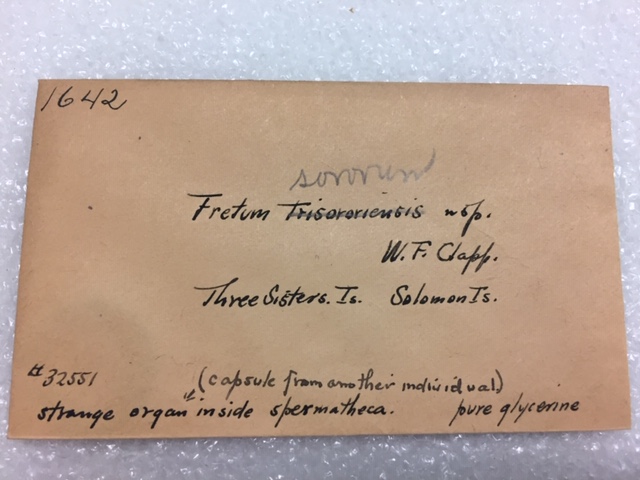 1642
sororum
Fretum Trisororiensis nsp.
W.F. Clapp.
Three Sisters. Is. Solomon Is.
#32551 (capsule from another individual)
strange organ" inside spermatheca. pure glycerine